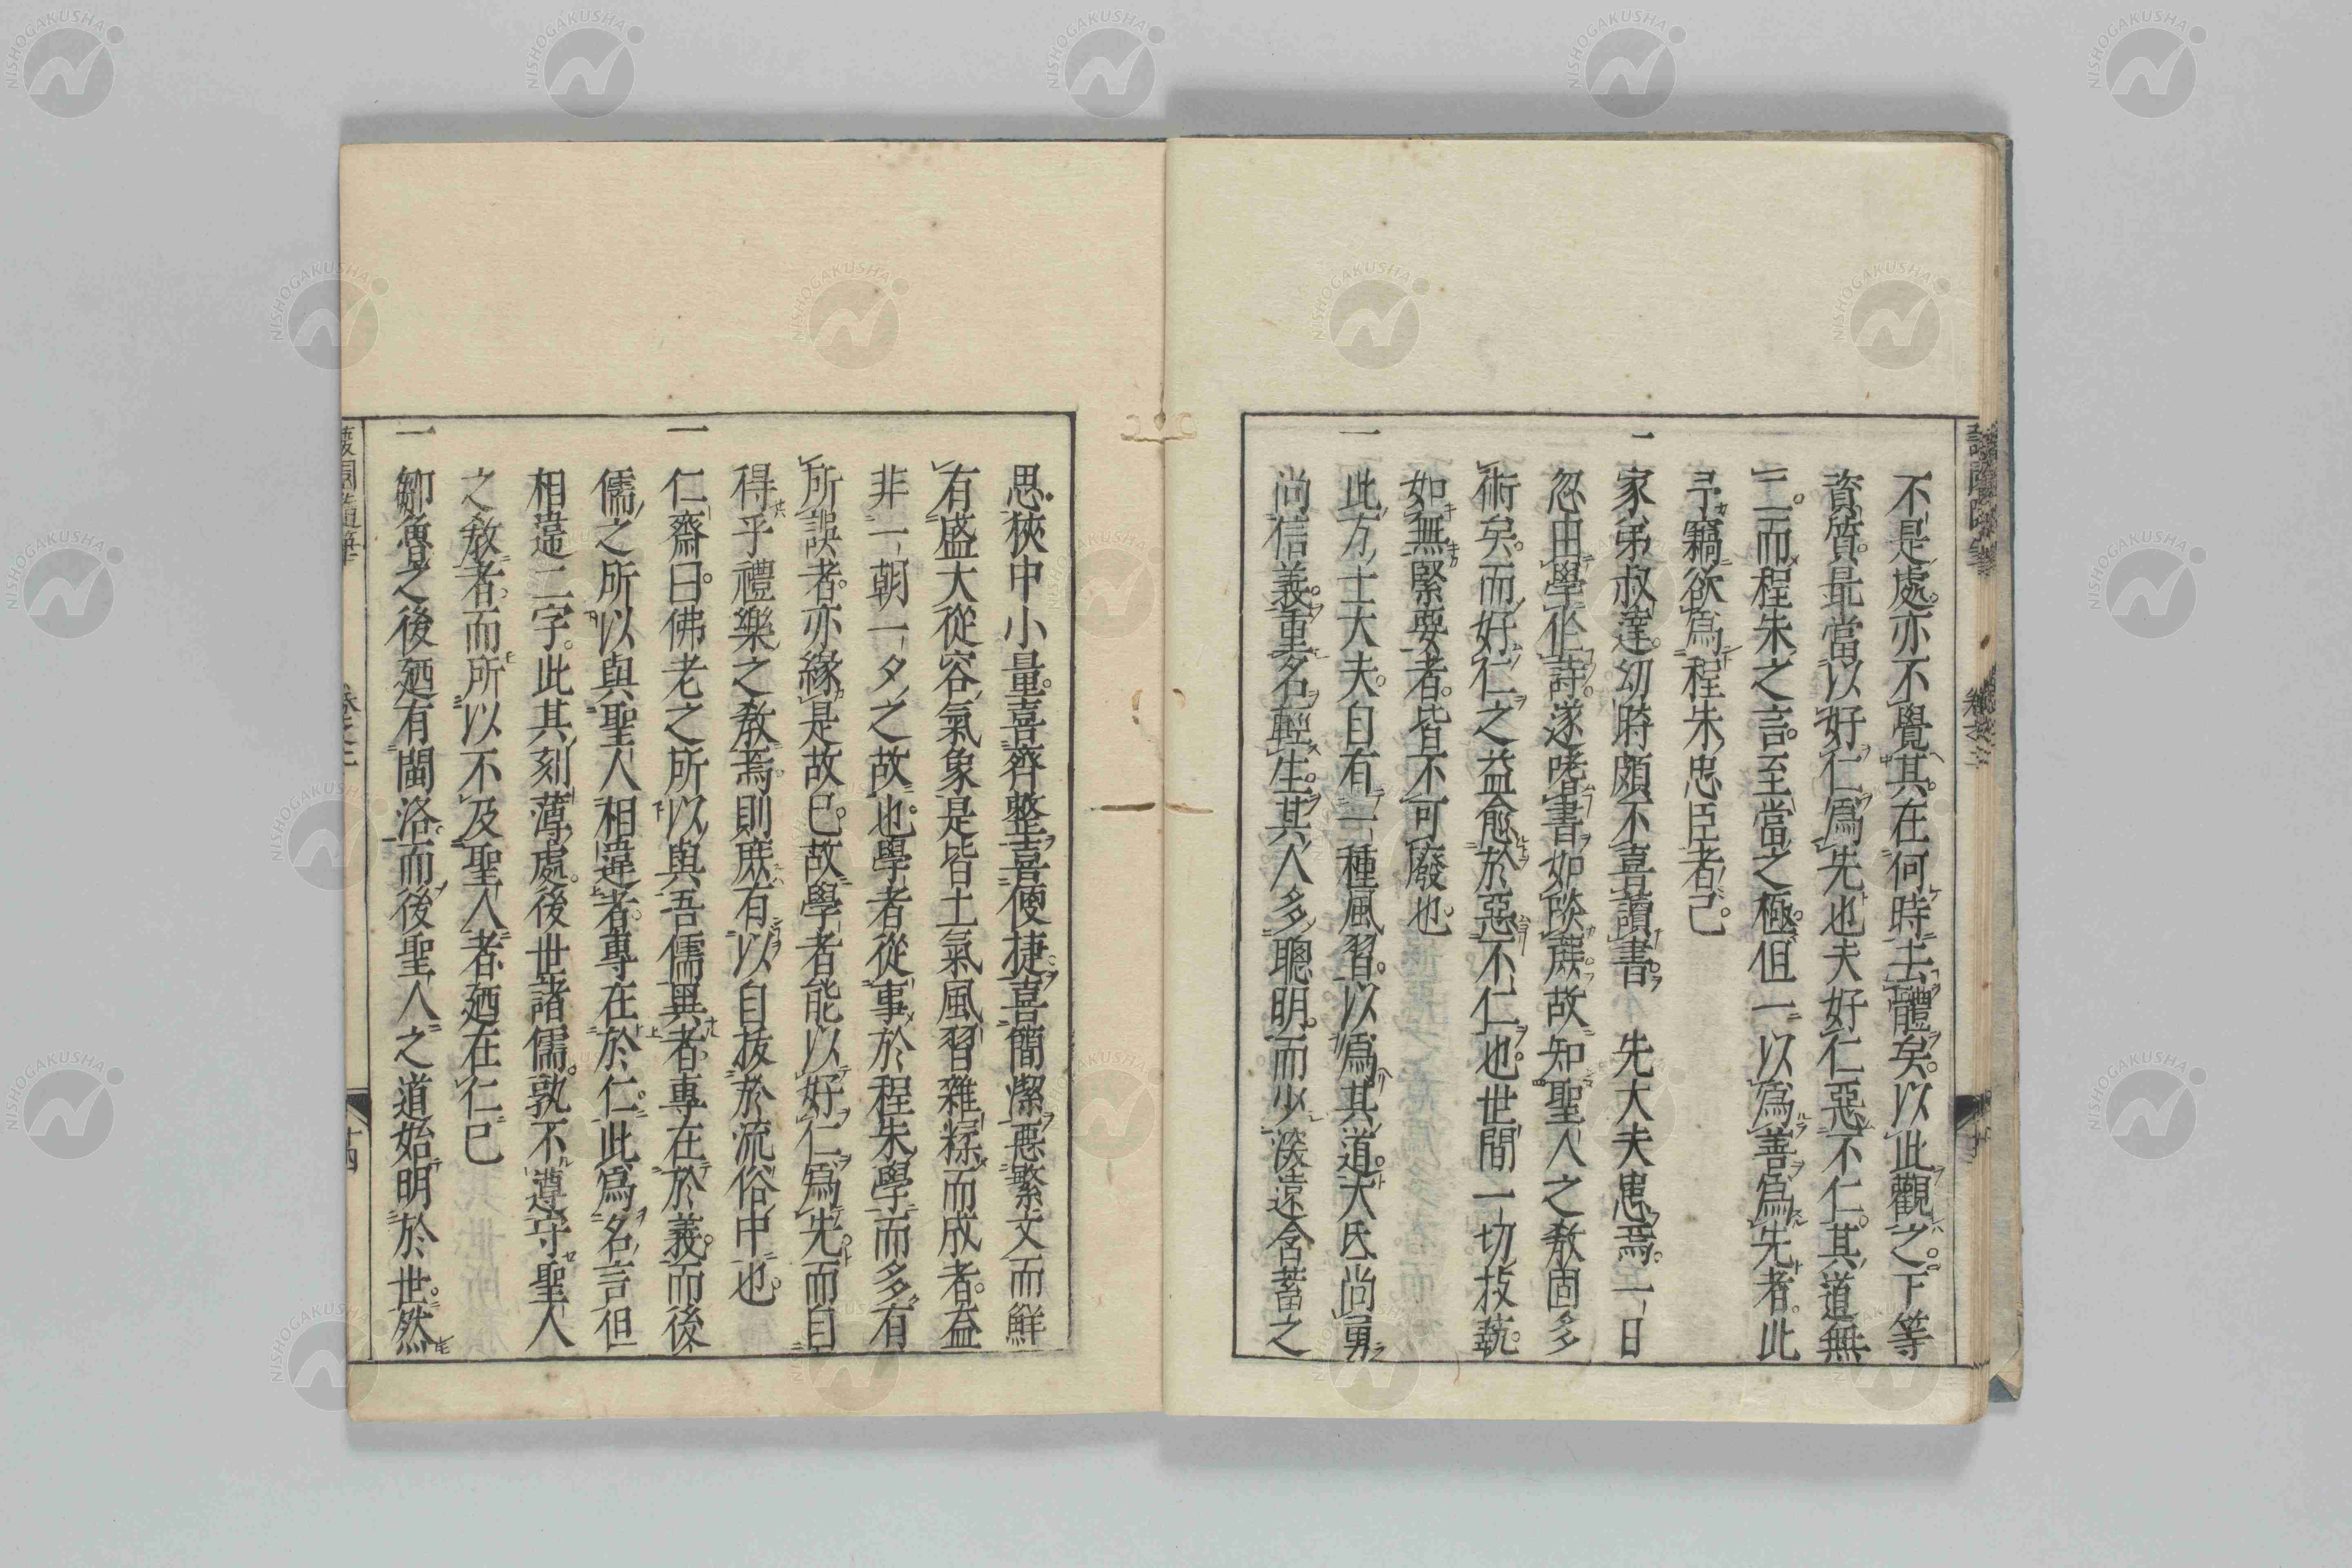 不是處。亦不覺其在何時去體矣。以此觀之。下等
資質。最當以好仁爲先也。夫好仁惡不仁。其道無
二。而程朱之言。至當之極。但一以爲善爲先者。此
予竊欲爲程朱忠臣者已。
一 家弟叔達。幼時頗不喜讀書。 先大夫患焉。一日
忽由學作詩。遂嗜書如餤蔗。故知聖人之敎。固多
術矣。而好仁之益愈於惡不仁也。世間一切技蓺。
如無緊要者。皆不可廢也。
一 此方士大夫。自有一種風習。以爲其道。大氐尚勇
尚信義。重名輕生。其人多聰明。而少淡遠含蓄之
思。狹中小量。喜齊整。喜便捷。喜簡潔。惡繁文。而鮮
有盛大從容氣象。是皆土氣風習雜糅而成者。益
非一朝一夕之故也。學者從事於程朱學。而多有
所誤者。亦緣是故已。故學者能以好仁爲先。而自
得乎禮樂之敎焉。則庶有以自拔於流俗中也。
一 仁齋曰。佛老之所以與吾儒異者。專在於義。而後
儒之所以與聖人相違者。專在於仁。此爲名言。但
相違二字。此其刻薄處。後世諸儒。孰不遵守聖人
之敎者。而所以不及聖人者。廼在仁已
一 鄒魯之後。廼有閩洛。而後聖人之道。始明於世。然
蘐園隨筆
卷之二
十四
NISHOGAKUSHA